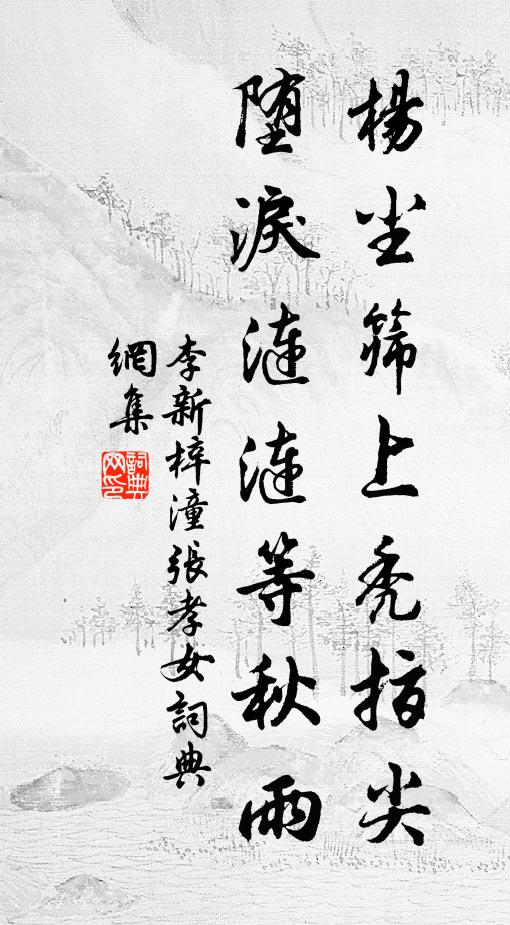 楊尘筛上秃指尖
堕淚漣漣等秋雨
李新梓潼張孝女詞典
網集
詞典
网印